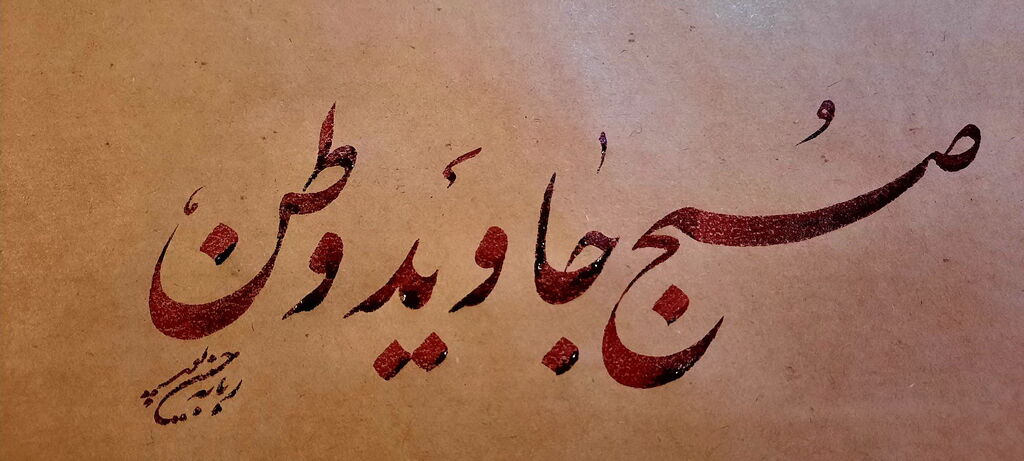 صُبح جاوید وطن